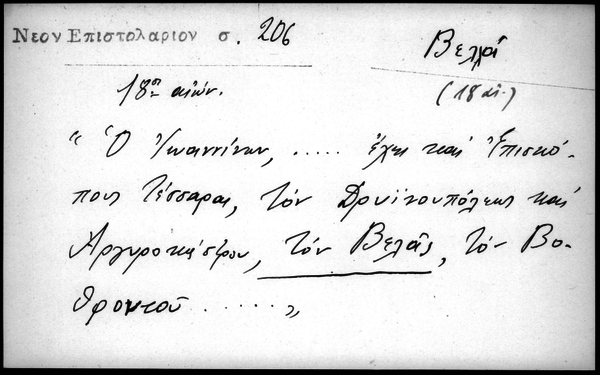 Νεον Επιστολαριον σ. 206
Βελλᾶ
18ος αἰών.
(18 αἰ.)
"Ὁ Ἰωαννίνων, ..... ἔχει καὶ Ἐπισκό-
πους τέσσαρας, τὸν Δρυϊνουπόλεως καὶ
Ἀργυροκάστρου, τὸν Βελᾶς, τὸν Βο-
θροντοῦ ......"